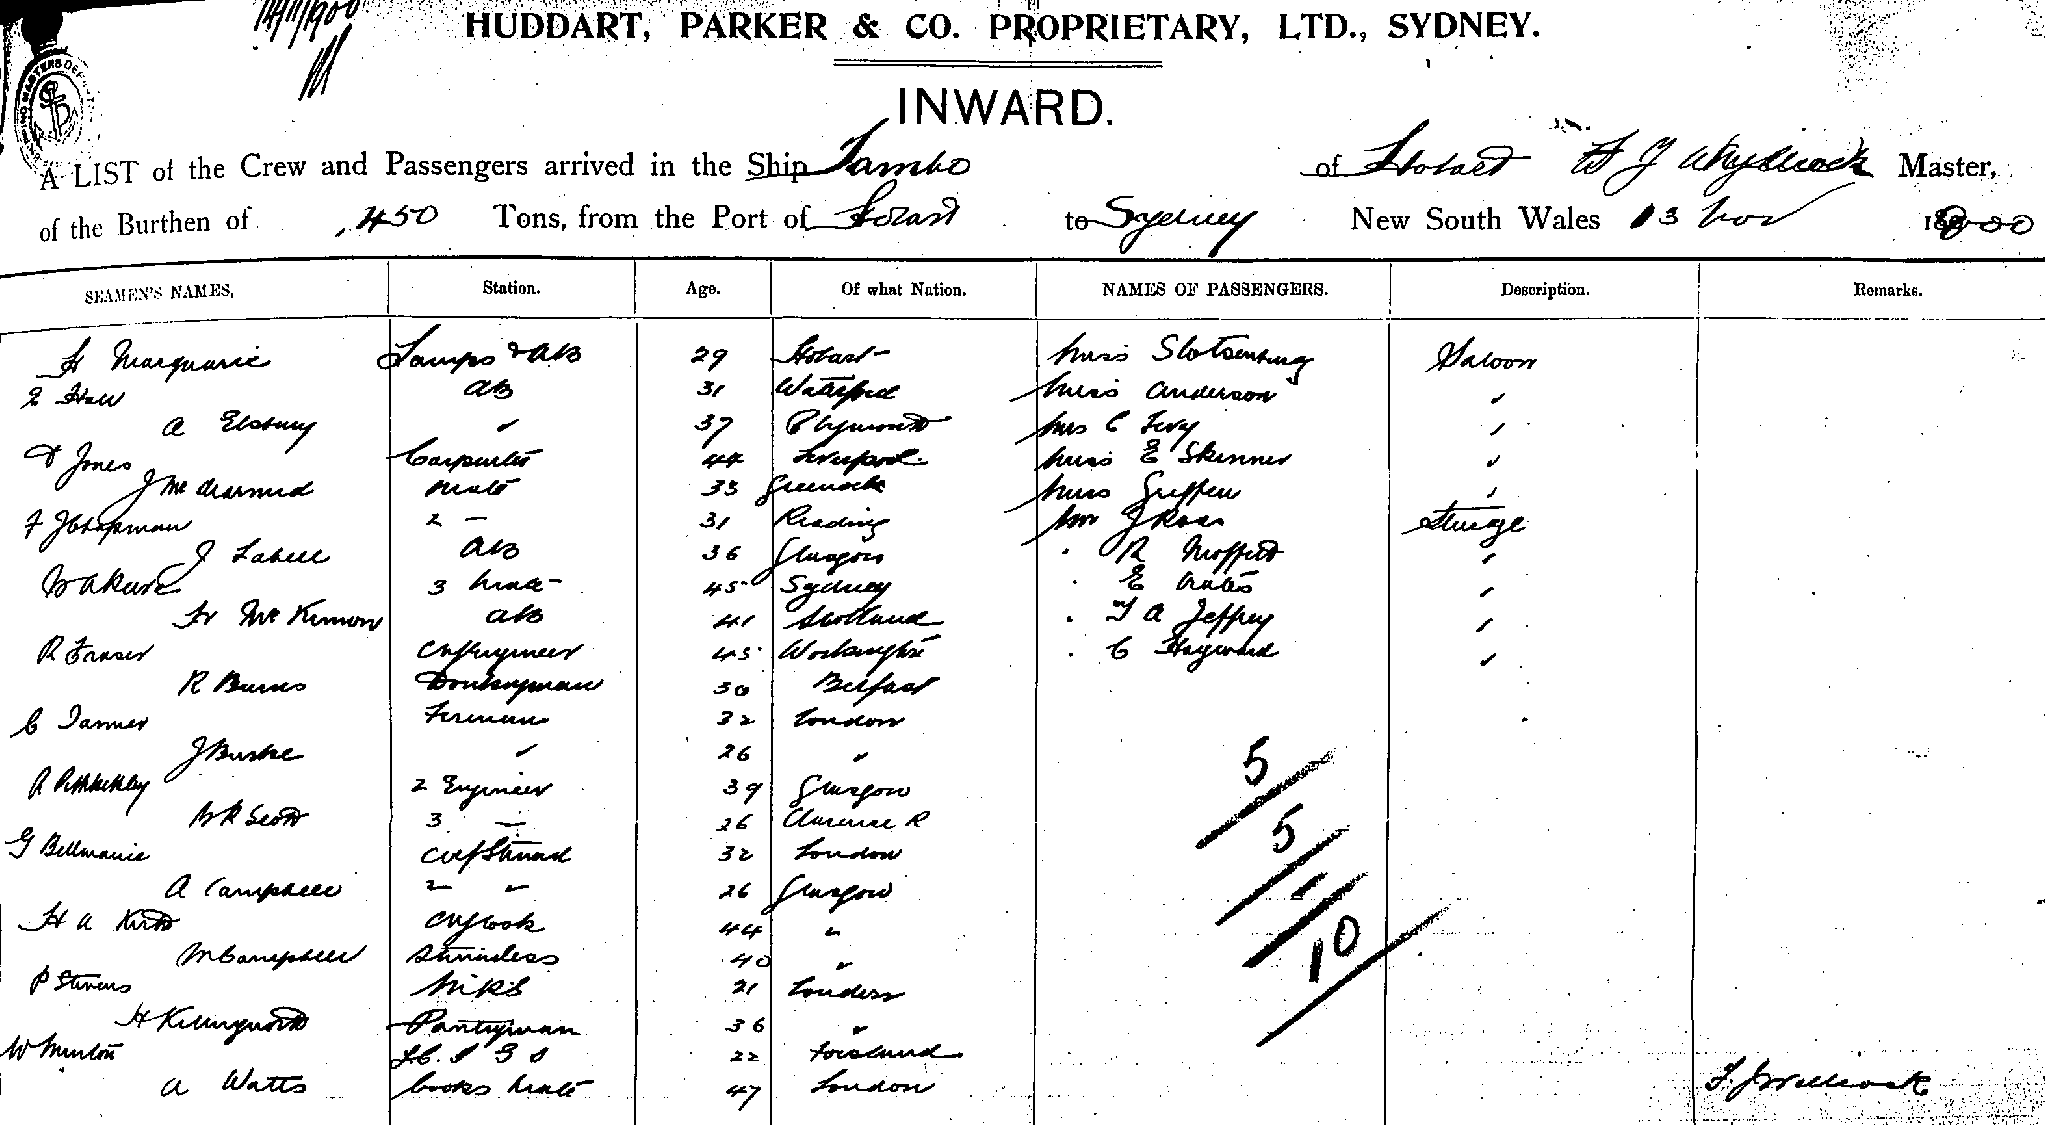 14/11/1900
HUDDART, PARKER & CO. PROPRIETARY, LTD., SYDNEY.
INWARD.
A LIST of the Crew and Passengers arrived in the Ship Tambo of Hobart Master,
of the Burthen of 450 Tons, from the Port of Hobart to Sydney New South Wales 13 Nov 1900
SEAMEN'S NAMES, Station. Age. Of what Nation. NAMES OF PASSENGERS. Description. Remarks.
H Marquarie Lamps & AB 29 Hobart Miss Slotsenburg Saloon
E Hall AB 31 Waterford Miss Anderson "
A Elsbury " 37 Plymouth Mrs C Levy "
D Jones Carpenter 44 Liverpool Miss E Skinner "
J McDiarmid Mate 33 Greenock Miss Griffen "
F J Chapman 2 — 31 Reading Mr J Ross Steerage
J Labell AB 36 Glasgow " R Moffett "
3 Mate 45 Sydney " E "
McKinnon AB 41 Scotland " T A Jeffrey "
R Fraser Cf Engineer 45 " C Hayward "
R Burns Donkeyman 30 Belfast
C Tanner Fireman 32 London
J Burke " 26 "
A 2 Engineer 39 Glasgow
W R Scott 3 — 26 Clarence R
G Bellmaine Chf Steward 32 London
A Campbell 2 " 26 Glasgow
H A Chf Cook 44 "
M Campbell Stewardess 40 "
P Stevens 21 London
H Killingworth Pantryman 36 "
W Minton 22
A Watts Cooks Mate 47 London
5
5
10